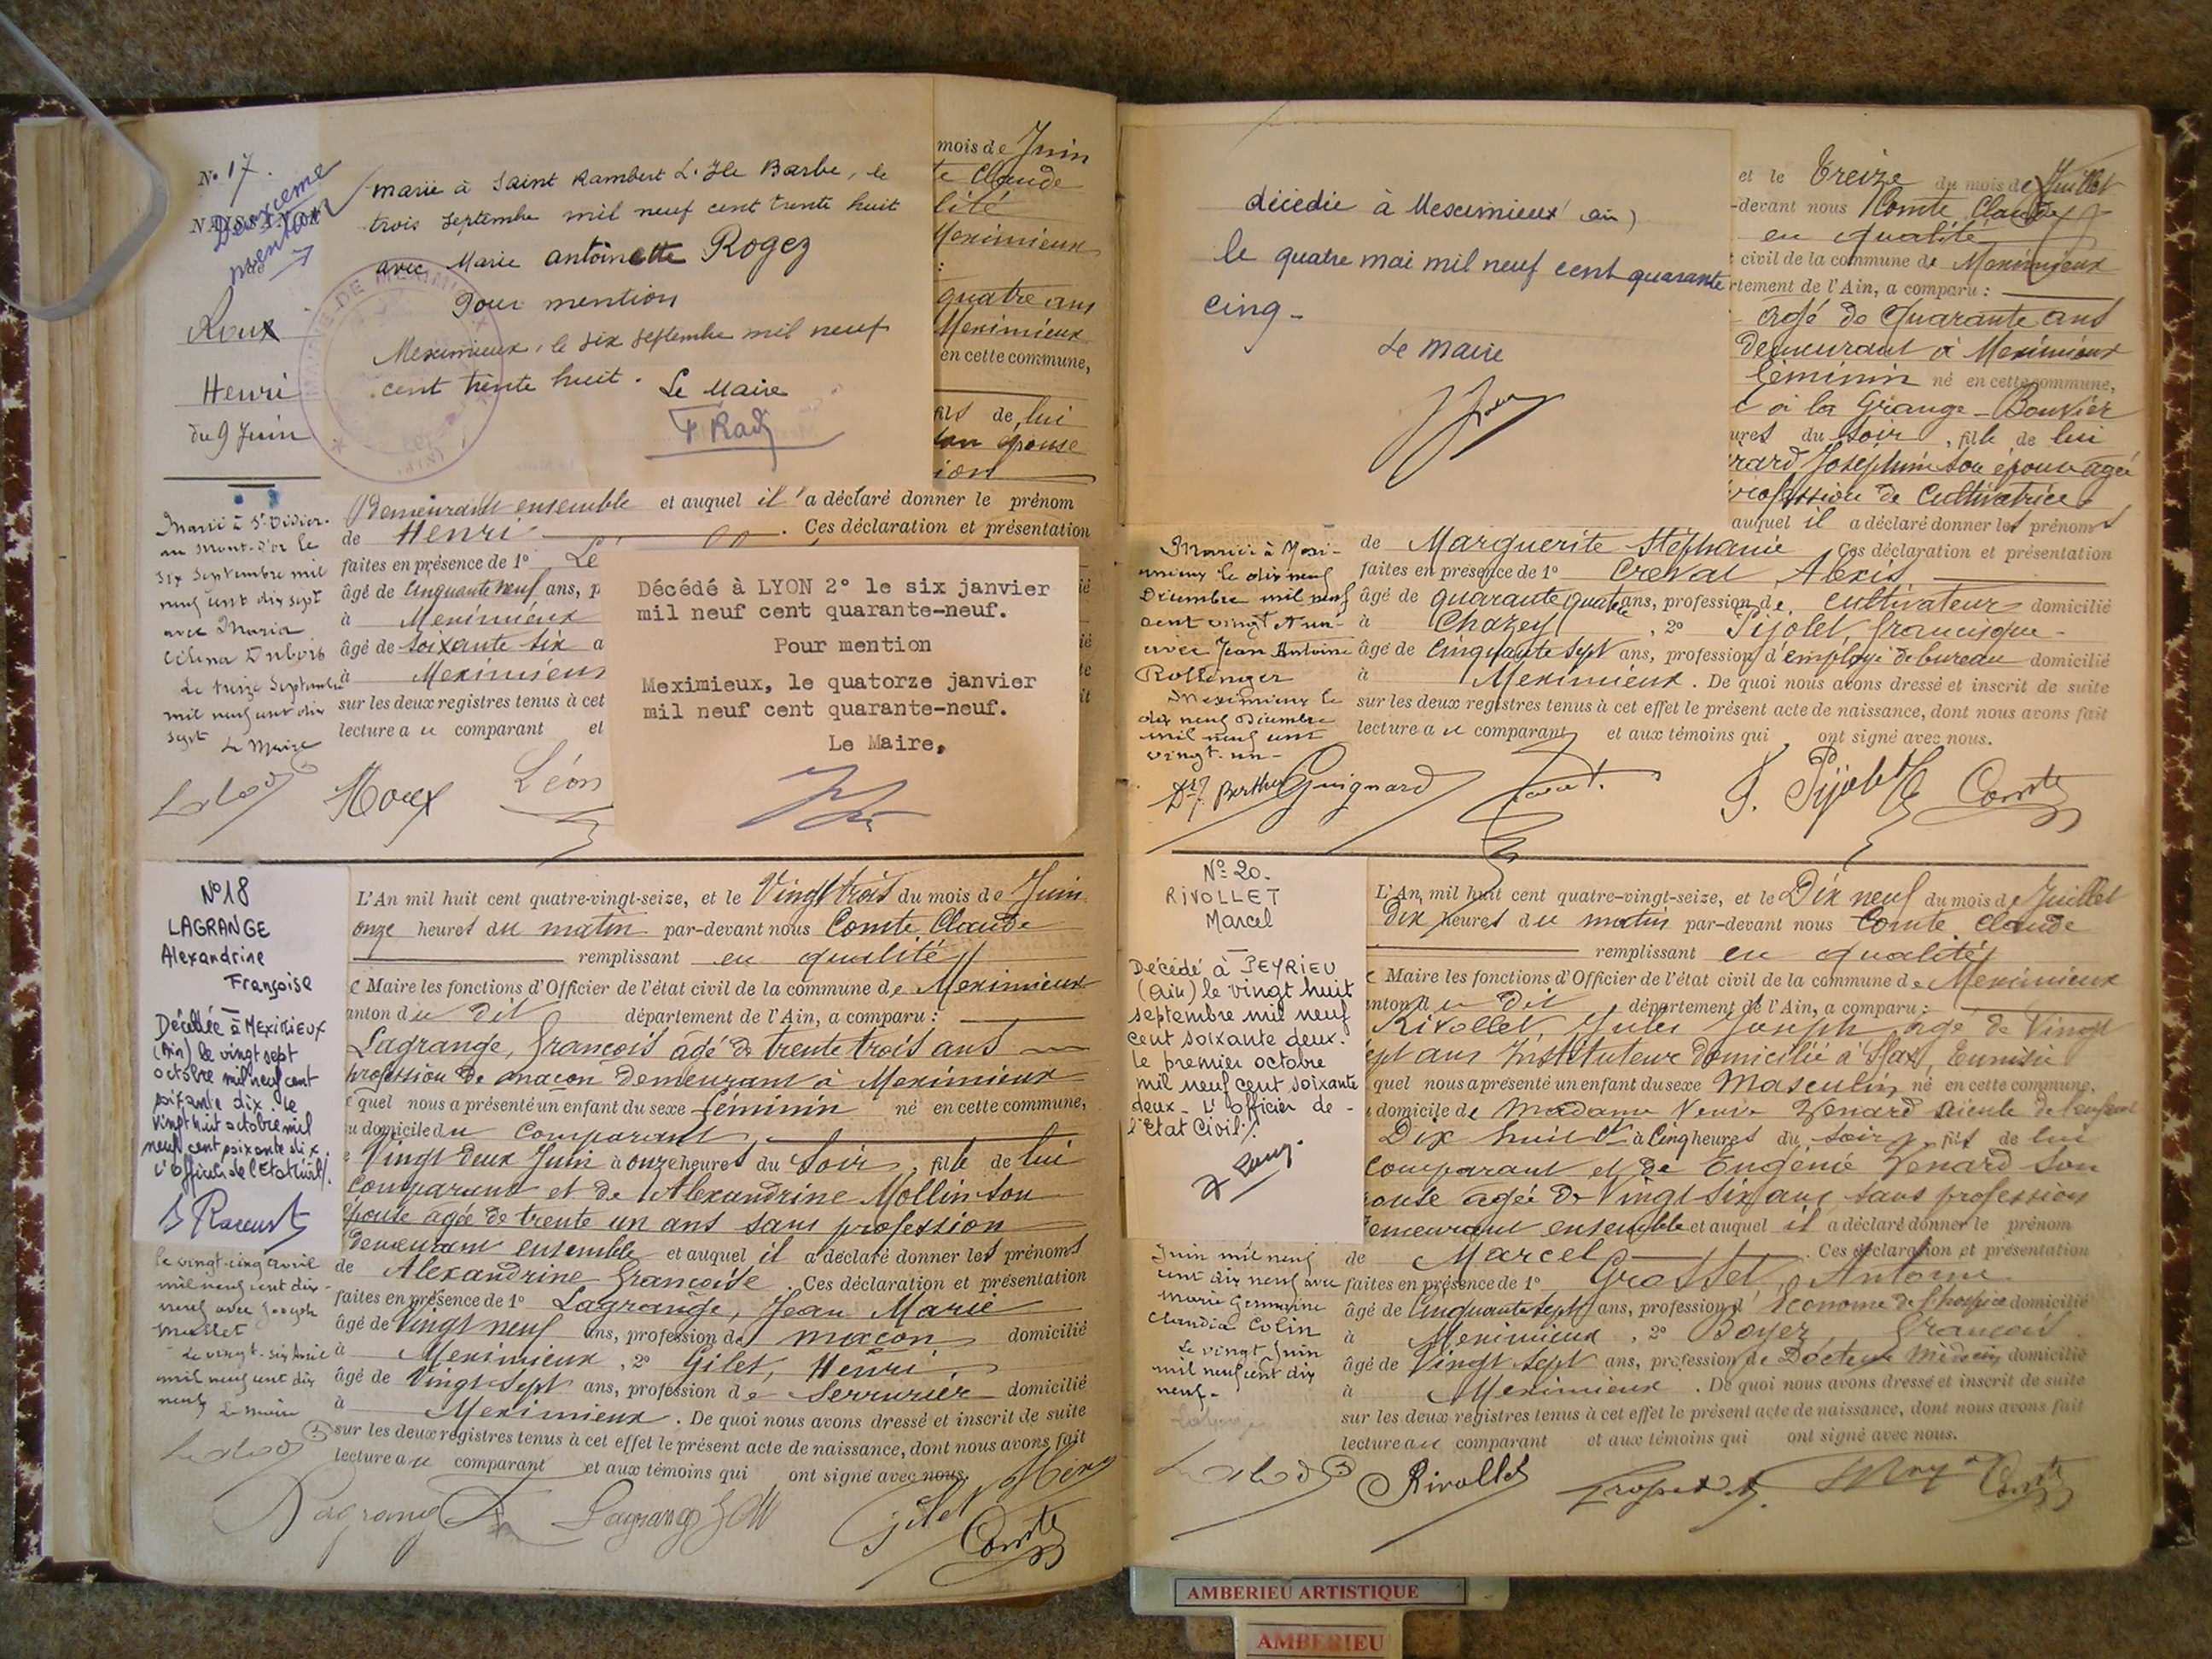 N° 17.
NAISSANCE
Deuxième
mention
Roux
Henri
du 9 Juin
marié à Saint Rambert L'Ile Barbe, le
trois septembre mil neuf cent trente huit
avec Marie antoinette Rogez
Pour mention
Meximieux, le six septembre mil neuf
cent trente huit. Le Maire
mois de Juin
te Claude
lité
Meximieux
quatre ans
Meximieux
en cette commune,
fils de lui
son épouse
ion
Demeurant ensemble et auquel il a déclaré donner le prénom
de Henri . Ces déclaration et présentation
faites en présence de 1° Lé
âgé de Cinquante neuf ans, p
à Meximieux
âgé de soixante six a
à Meximieux
sur les deux registres tenus à cet
lecture au comparant et
Marié à St Didier
au Mont-d'or le
six Septembre mil
neuf cent dix sept
avec Maria
Célina Dubois
Le treize Septembre
mil neuf cent dix
sept Le Maire
Décédé à LYON 2° le six janvier
mil neuf cent quarante-neuf.
Pour mention
Meximieux, le quatorze janvier
mil neuf cent quarante-neuf.
Le Maire,
Roux Léon
N°18
LAGRANGE
Alexandrine
Françoise
Décédée à MEXIMIEUX
(Ain) le vingt sept
octobre mil neuf cent
soixante dix. Le
vingt huit octobre mil
neuf cent soixante dix.
L'Officier de l'Etat Civil/.
le vingt-cinq avril
mil neuf cent dix-
neuf avec Joseph
Mollet
Le vingt-six Avril
mil neuf cent dix
neuf Le maire
L'An mil huit cent quatre-vingt-seize, et le Vingt trois du mois de Juin
onze heures du matin par-devant nous Comte Claude
remplissant en qualité
e Maire les fonctions d'Officier de l'état civil de la commune de Meximieux
anton du dit département de l'Ain, a comparu :
Lagrange, François âgé de trente trois ans
profession de maçon demeurant à Meximieux
quel nous a présenté un enfant du sexe féminin né en cette commune,
u domicile du comparant,
Vingt deux Juin à onze heures du soir, fille de lui
comparant et de Alexandrine Mollin son
épouse agée de trente un ans sans profession
demeurant ensemble et auquel il a déclaré donner les prénoms
de Alexandrine Françoise . Ces déclaration et présentation
faites en présence de 1° Lagrange, Jean Marie
âgé de Vingt neuf ans, profession de maçon domicilié
à Meximieux , 2° Gilet, Henri
âgé de Vingt sept ans, profession de Serrurier domicilié
à Meximieux . De quoi nous avons dressé et inscrit de suite
sur les deux registres tenus à cet effet le présent acte de naissance, dont nous avons fait
lecture au comparant et aux témoins qui ont signé avec nous.
Lagrange Lagrange J M Gilet Henri
Comte
décédée à Meximieux (Ain)
le quatre mai mil neuf cent quarante
cinq -
Le Maire
et le Treize du mois de Juillet
-devant nous Comte Claude
en qualité
civil de la commune de Meximieux
rtement de l'Ain, a comparu :
âgé de Quarante ans
demeurant à Meximieux
féminin né en cette commune,
à la Grange-Bouvier
ures du soir, fille de lui
rard Joséphine son épouse agée
profession de Cultivatrice
auquel il a déclaré donner les prénoms
de Marguerite Stéphanie Ces déclaration et présentation
faites en présence de 1° Creval Alexis
âgé de quarante quatre ans, profession de cultivateur domicilié
à Chazey , 2° Pijolet, Francisque
âgé de Cinquante sept ans, profession d'employé de bureau domicilié
à Meximieux . De quoi nous avons dressé et inscrit de suite
sur les deux registres tenus à cet effet le présent acte de naissance, dont nous avons fait
lecture au comparant et aux témoins qui ont signé avec nous.
Mariée à Mexi-
mieux le dix neuf
Décembre mil neuf
cent vingt & un-
avec Jean Antoine
Rollenger
Meximieux le
dix neuf Décembre
mil neuf cent
vingt-un-
Guignard F. Pijolet Comte
N° 20.
RIVOLLET
Marcel
Décédé à PEYRIEU
(Ain) le vingt huit
septembre mil neuf
cent soixante deux.
le premier octobre
mil neuf cent soixante
deux - L'Officier de -
l'Etat Civil/.
Juin mil neuf
cent dix neuf avec
Marie Germaine
Claudia Colin
Le vingt Juin
mil neuf cent dix
neuf-
L'An mil huit cent quatre-vingt-seize, et le Dix neuf du mois de Juillet
Dix heures du matin par-devant nous Comte Claude
remplissant en qualité
e Maire les fonctions d'Officier de l'état civil de la commune de Meximieux
anton du dit , département de l'Ain, a comparu :
Rivollet, Jules Joseph, agé de Vingt
ept ans Instituteur domicilié à Sfax, Tunisie
quel nous a présenté un enfant du sexe Masculin né en cette commune,
u domicile de Madame Veuve Venard aïeule de l'enfant
Dix huit à Cinq heures du soir, fils de lui
comparant et de Eugénie Venard son
pouse agée de Vingt six ans, sans profession
emeurant ensemble et auquel il a déclaré donner le prénom
de Marcel . Ces déclaration et présentation
faites en présence de 1° Grosset, Antoine
âgé de Cinquante sept ans, profession d'économe de l'hospice domicilié
à Meximieux , 2° Boyer François
âgé de Vingt sept ans, profession de Docteur Médecin domicilié
à Meximieux . De quoi nous avons dressé et inscrit de suite
sur les deux registres tenus à cet effet le présent acte de naissance, dont nous avons fait
lecture au comparant et aux témoins qui ont signé avec nous.
Rivollet Comte
AMBERIEU ARTISTIQUE
AMBERIEU